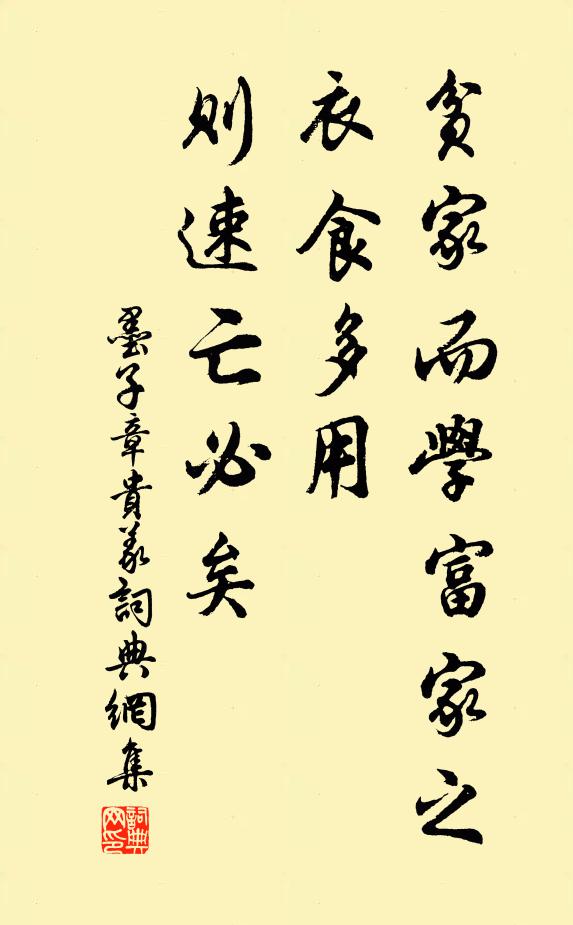 貧家而學富家之
衣食多用
則速亡必矣
墨子章貴義詞典網集
詞典網印